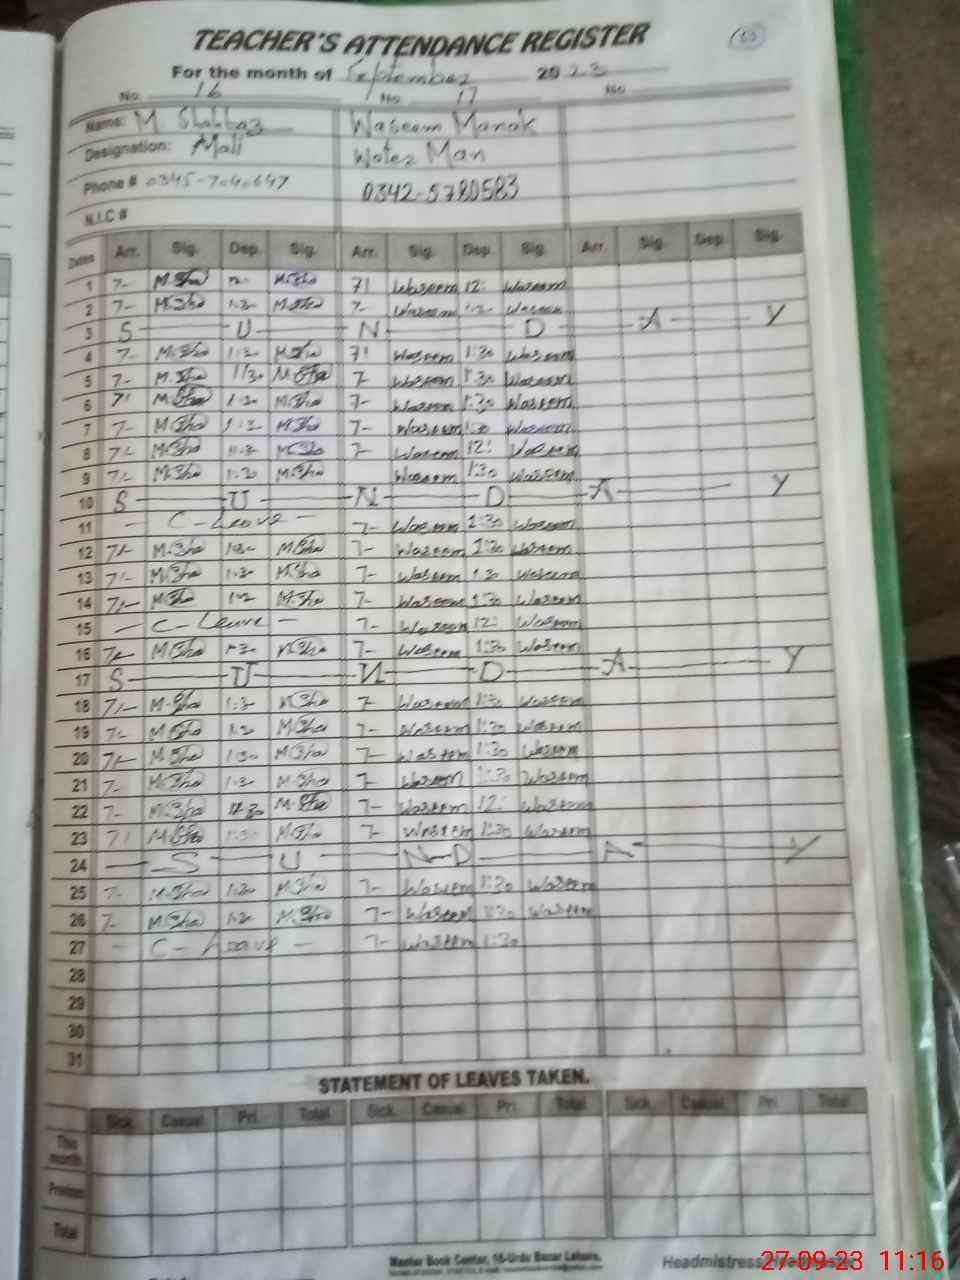 53
TEACHER'S ATTENDANCE REGISTER
For the month of September 2023
No. 16 No. 17 No.
Name: M. Shahbaz Waseem Manak
Designation: Mali Water Man
Phone # 0342-5780583
N.I.C #
Dates Arr. Sig. Dep. Sig. Arr. Sig. Dep. Sig. Arr. Sig. Dep. Sig.
1 7- M.Sha 12- M.Sha 7! Waseem 12: Waseem
2 7- M.Sha 1:30 M.Sha 7- Waseem Waseem
3 S U N D A Y
4 7- M.Sha 1:30 M.Sha 7! Waseem 1:30 Waseem
5 7- M.Sha 1:30 M.Sha 7- Waseem 1:30 Waseem
6 7! M.Sha 1:30 M.Sha 7- Waseem 1:30 Waseem
7 7- M.Sha 1:30 M.Sha 7- Waseem 1:30 Waseem
8 7- M.Sha M.Sha 7- Waseem 12: Waseem
9 7- M.Sha 1:30 M.Sha Waseem 1:30 Waseem
10 S U N D A Y
11 - C-Leave - 7- Waseem 1:30 Waseem
12 7- M.Sha M.Sha 7- Waseem 1:30 Waseem
13 7- M.Sha 1:30 M.Sha 7- Waseem 1:30 Waseem
14 7- M.Sha M.Sha 7- Waseem 1:30 Waseem
15 - C-Leave - 7- Waseem 12: Waseem
16 7- M.Sha M.Sha 7- Waseem 1:30 Waseem
17 S U N D A Y
18 7- M.Sha 1:30 M.Sha 7- Waseem 1:30 Waseem
19 7- M.Sha M.Sha 7- Waseem 1:30 Waseem
20 7- M.Sha 1:30 M.Sha 7- Waseem 1:30 Waseem
21 7- M.Sha 1:30 M.Sha 7- Waseem 1:30 Waseem
22 7- M.Sha 12:30 M.Sha 7- Waseem 12: Waseem
23 7! M.Sha 1:30 M.Sha 7- Waseem 1:30 Waseem
24 S U N D A Y
25 7- M.Sha 1:30 M.Sha 7- Waseem 1:30 Waseem
26 7- M.Sha 1:30 M.Sha 7- Waseem 1:30 Waseem
27 - C-Leave - 7- Waseem 1:30
28
29
30
31
STATEMENT OF LEAVES TAKEN.
Sick. Casual. Pri. Total Sick. Casual. Pri. Total Sick. Casual. Pri. Total
This month
Previous
Total
Master Book Center, 16-Urdu Bazar Lahore.
Headmistress/Headmaster
27-09-23 11:16